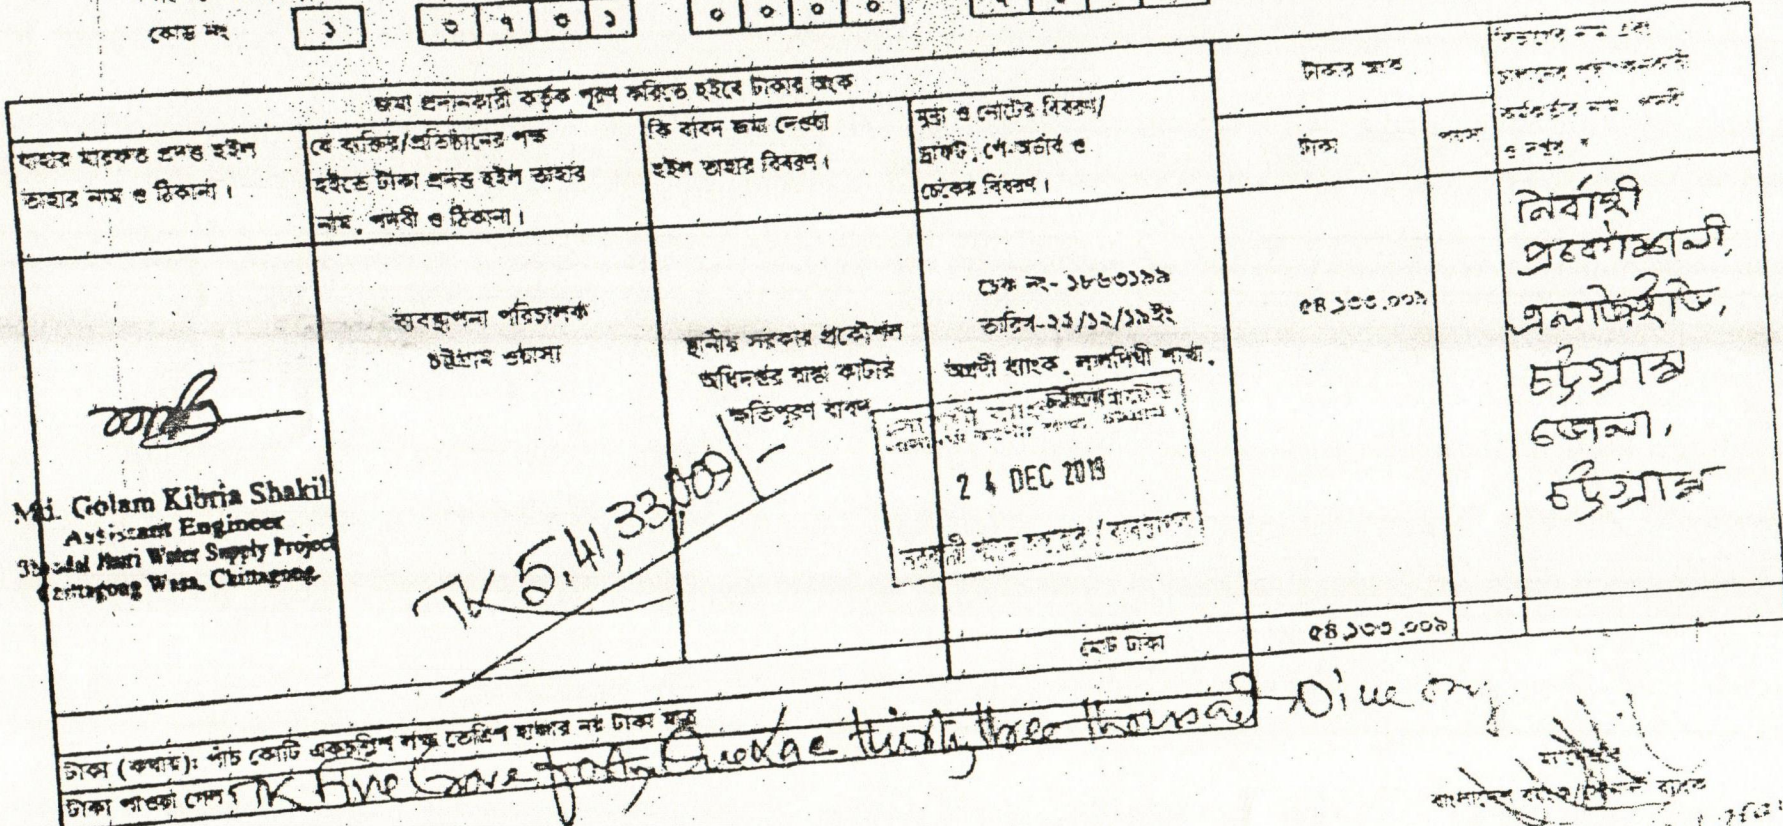 কোড নং ১ ৩ ৭ ৩ ১ ০ ০ ০ ০
জমা প্রদানকারী কর্তৃক পূরণ করিতে হইবে টাকার অংক
টাকার অংক
যাহার মারফত প্রদত্ত হইল
তাহার নাম ও ঠিকানা।
যে ব্যক্তির/প্রতিষ্ঠানের পক্ষ
হইতে টাকা প্রদত্ত হইল তাহার
নাম, পদবী ও ঠিকানা।
কি বাবদ জমা দেওয়া
হইল তাহার বিবরণ।
মুদ্রা ও নোটের বিবরণ/
ড্রাফট, পে-অর্ডার ও
চেকের বিবরণ।
টাকা
পয়সা
বিভাগের নাম এবং
কর্মকর্তার নাম, পদবী
ও দপ্তর *
Md. Golam Kibria Shakil
Assistant Engineer
Bhandal Juri Water Supply Project
Chittagong Wasa, Chittagong.
ব্যবস্থাপনা পরিচালক
চট্টগ্রাম ওয়াসা
স্থানীয় সরকার প্রকৌশল
অধিদপ্তর রাস্তা কাটার
ক্ষতিপূরণ বাবদ
চেক নং- ১৮৬৩১৯৯
তারিখ-২২/১২/১৯ইং
অগ্রণী ব্যাংক, লালদিঘী শাখা,
চট্টগ্রাম
2 4 DEC 2019
TK 5,41,33,009/-
৫৪,১৩৩,০০৯
নির্বাহী
প্রকৌশলী,
এলজিইডি,
চট্টগ্রাম
জেলা,
চট্টগ্রাম
মোট টাকা ৫৪,১৩৩,০০৯
টাকা (কথায়): পাঁচ কোটি একচল্লিশ লক্ষ তেত্রিশ হাজার নয় টাকা মাত্র
টাকা পাওয়া গেল। TK Five Crore forty One Lac thirty three thousand Nine only
ম্যানেজার
বাংলাদেশ ব্যাংক/সোনালী ব্যাংক